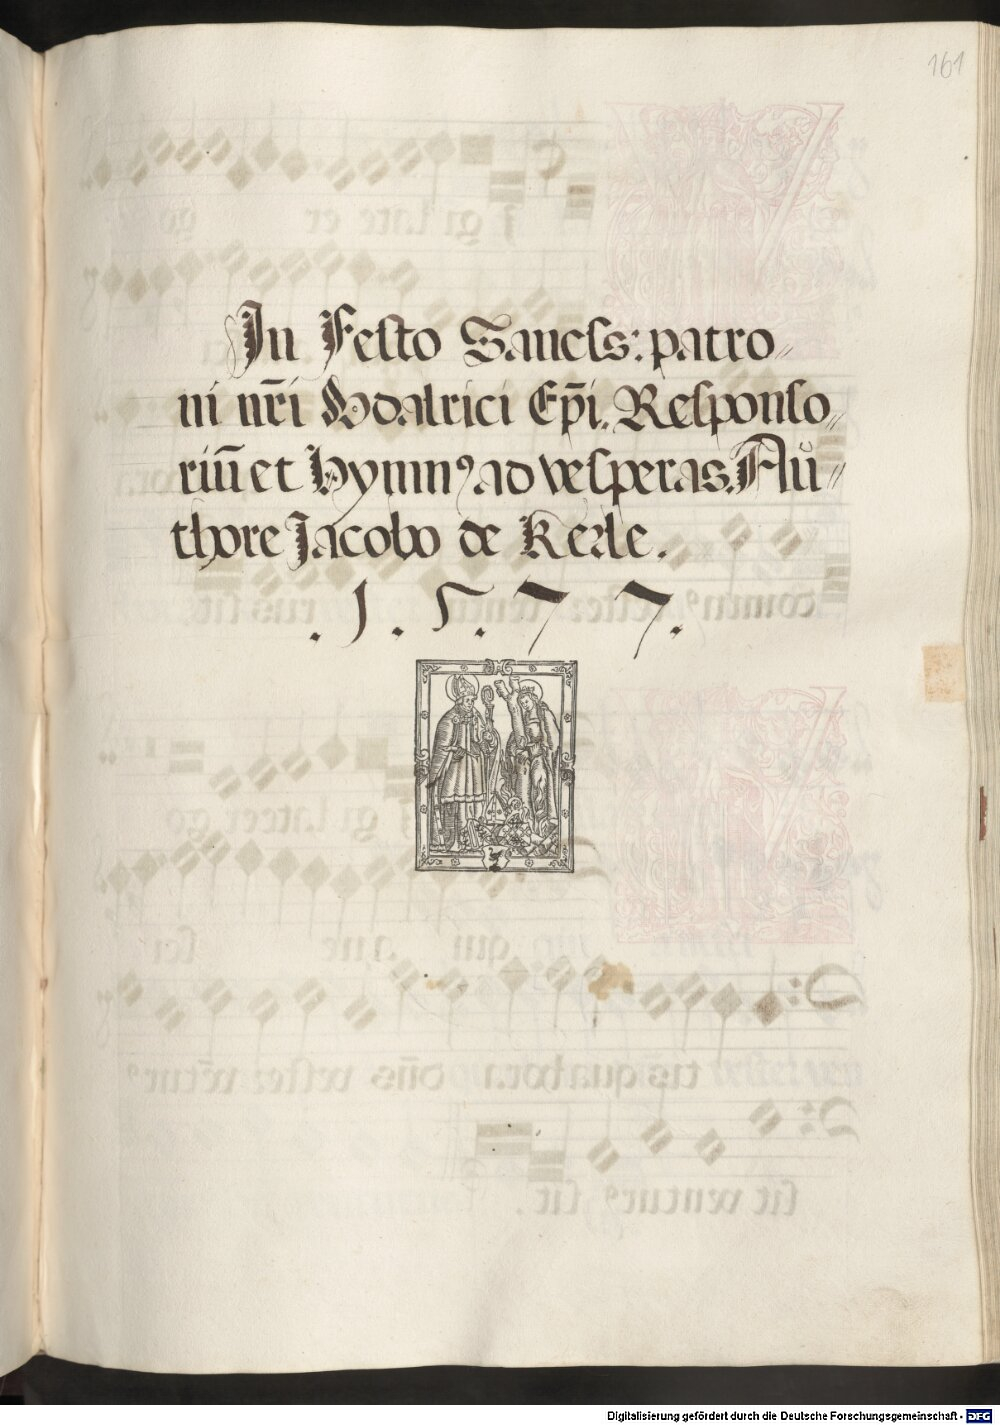 161
In Festo Sanctss: patro-
ni nr̃i Vdalrici Ep̃i. Responso-
riũ et Hymnꝰ ad vesperas. Au-
thore Jacobo de Kerle.
.1.5.7.7.
Digitalisierung gefördert durch die Deutsche Forschungsgemeinschaft - DFG